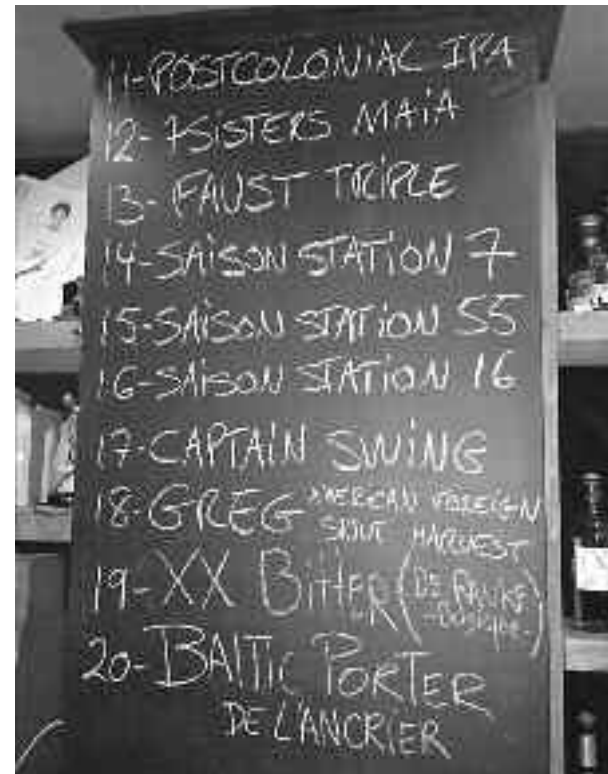 11-POSTCOLONIAL IPA
12-7SISTERS MAIA
13-FAUST TRIPLE
14-SAISON STATION 7
15-SAISON STATION 55
16-SAISON STATION 16
17-CAPTAIN SWING
18-GREG FOREIGN
HARVEST
19-XX BITTER (DE RANKE
20-BALTIC PORTER
DE L'ANCRIER